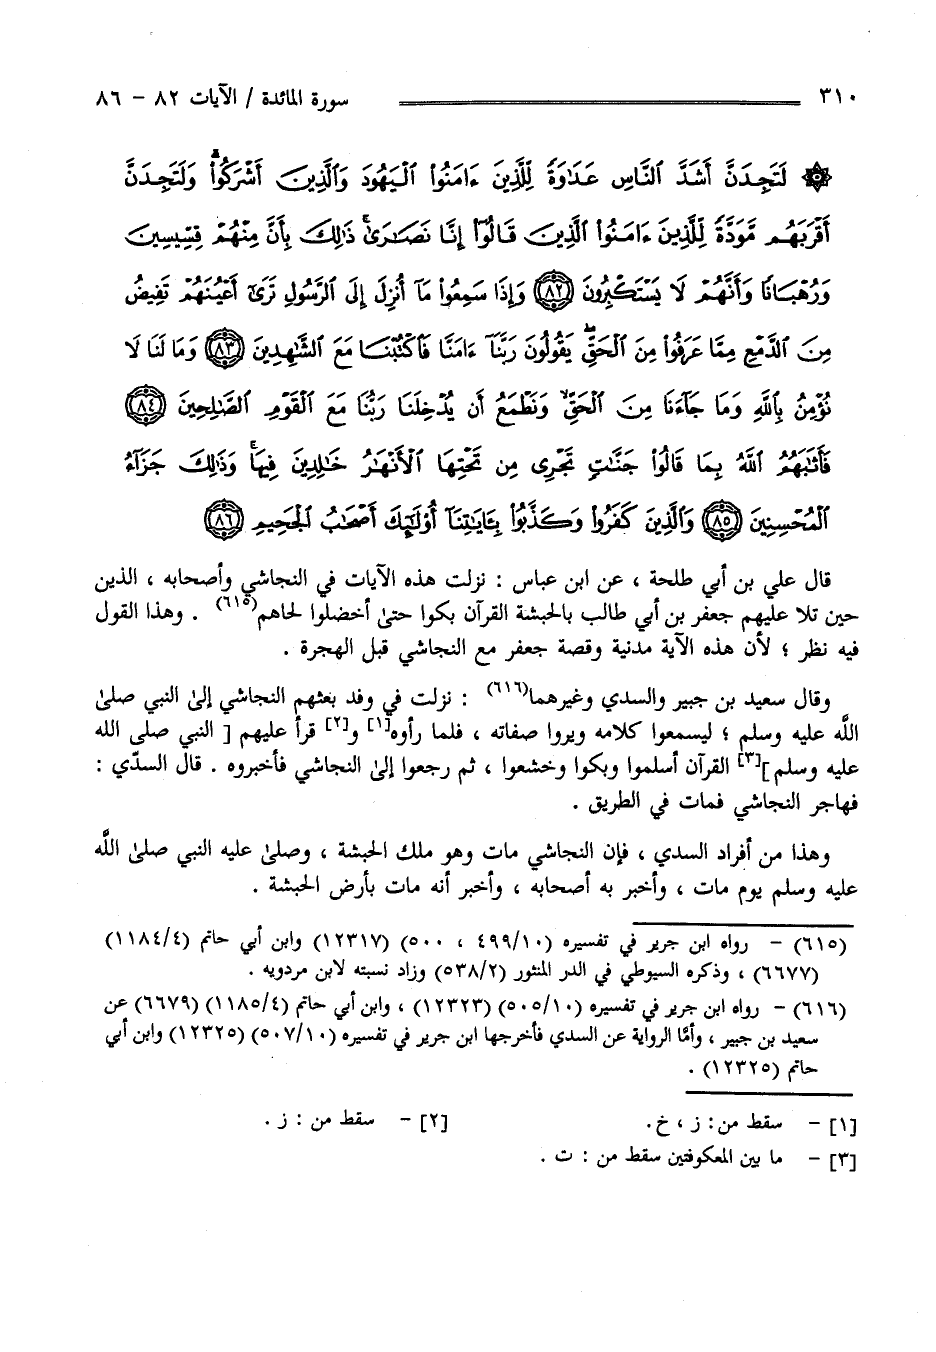 ٣١٠ سورة المائدة / الآيات ٨٢ – ٨٦
۞ لَتَجِدَنَّ أَشَدَّ ٱلنَّاسِ عَدَٰوَةً لِّلَّذِينَ ءَامَنُوا۟ ٱلْيَهُودَ وَٱلَّذِينَ أَشْرَكُوا۟ ۖ وَلَتَجِدَنَّ
أَقْرَبَهُم مَّوَدَّةً لِّلَّذِينَ ءَامَنُوا۟ ٱلَّذِينَ قَالُوٓا۟ إِنَّا نَصَٰرَىٰ ۚ ذَٰلِكَ بِأَنَّ مِنْهُمْ قِسِّيسِينَ
وَرُهْبَانًا وَأَنَّهُمْ لَا يَسْتَكْبِرُونَ ﴿٨٢﴾ وَإِذَا سَمِعُوا۟ مَآ أُنزِلَ إِلَى ٱلرَّسُولِ تَرَىٰٓ أَعْيُنَهُمْ تَفِيضُ
مِنَ ٱلدَّمْعِ مِمَّا عَرَفُوا۟ مِنَ ٱلْحَقِّ ۖ يَقُولُونَ رَبَّنَآ ءَامَنَّا فَٱكْتُبْنَا مَعَ ٱلشَّٰهِدِينَ ﴿٨٣﴾ وَمَا لَنَا لَا
نُؤْمِنُ بِٱللَّهِ وَمَا جَآءَنَا مِنَ ٱلْحَقِّ وَنَطْمَعُ أَن يُدْخِلَنَا رَبُّنَا مَعَ ٱلْقَوْمِ ٱلصَّٰلِحِينَ ﴿٨٤﴾
فَأَثَٰبَهُمُ ٱللَّهُ بِمَا قَالُوا۟ جَنَّٰتٍ تَجْرِى مِن تَحْتِهَا ٱلْأَنْهَٰرُ خَٰلِدِينَ فِيهَا ۚ وَذَٰلِكَ جَزَآءُ
ٱلْمُحْسِنِينَ ﴿٨٥﴾ وَٱلَّذِينَ كَفَرُوا۟ وَكَذَّبُوا۟ بِـَٔايَٰتِنَآ أُو۟لَٰٓئِكَ أَصْحَٰبُ ٱلْجَحِيمِ ﴿٨٦﴾
قال علي بن أبي طلحة ، عن ابن عباس : نزلت هذه الآيات في النجاشي وأصحابه ، الذين
حين تلا عليهم جعفر بن أبي طالب بالحبشة القرآن بكوا حتىٰ أخضلوا لحاهم(٦١٥) . وهذا القول
فيه نظر ؛ لأن هذه الآية مدنية وقصة جعفر مع النجاشي قبل الهجرة .
وقال سعيد بن جبير والسدي وغيرهما(٦١٦) : نزلت في وفد بعثهم النجاشي إلىٰ النبي صلىٰ
اللَّه عليه وسلم ؛ ليسمعوا كلامه ويروا صفاته ، فلما رأوه[١] و[٢] قرأ عليهم [ النبي صلى الله
عليه وسلم][٣] القرآن أسلموا وبكوا وخشعوا ، ثم رجعوا إلىٰ النجاشي فأخبروه . قال السدّي :
فهاجر النجاشي فمات في الطريق .
وهذا من أفراد السدي ، فإن النجاشي مات وهو ملك الحبشة ، وصلىٰ عليه النبي صلىٰ اللَّه
عليه وسلم يوم مات ، وأخبر به أصحابه ، وأخبر أنه مات بأرض الحبشة .
(٦١٥) – رواه ابن جرير في تفسيره (٤٩٩/١٠ ، ٥٠٠) (١٢٣١٧) وابن أبي حاتم (١١٨٤/٤)
(٦٦٧٧) ، وذكره السيوطي في الدر المنثور (٥٣٨/٢) وزاد نسبته لابن مردويه .
(٦١٦) – رواه ابن جرير في تفسيره (٥٠٥/١٠) (١٢٣٢٣) ، وابن أبي حاتم (١١٨٥/٤) (٦٦٧٩) عن
سعيد بن جبير ، وأمَّا الرواية عن السدي فأخرجها ابن جرير في تفسيره (٥٠٧/١٠) (١٢٣٢٥) وابن أبي
حاتم (١٢٣٢٥) .
[١] – سقط من: ز ، خ. [٢] – سقط من : ز .
[٣] – ما بين المعكوفتين سقط من : ت .